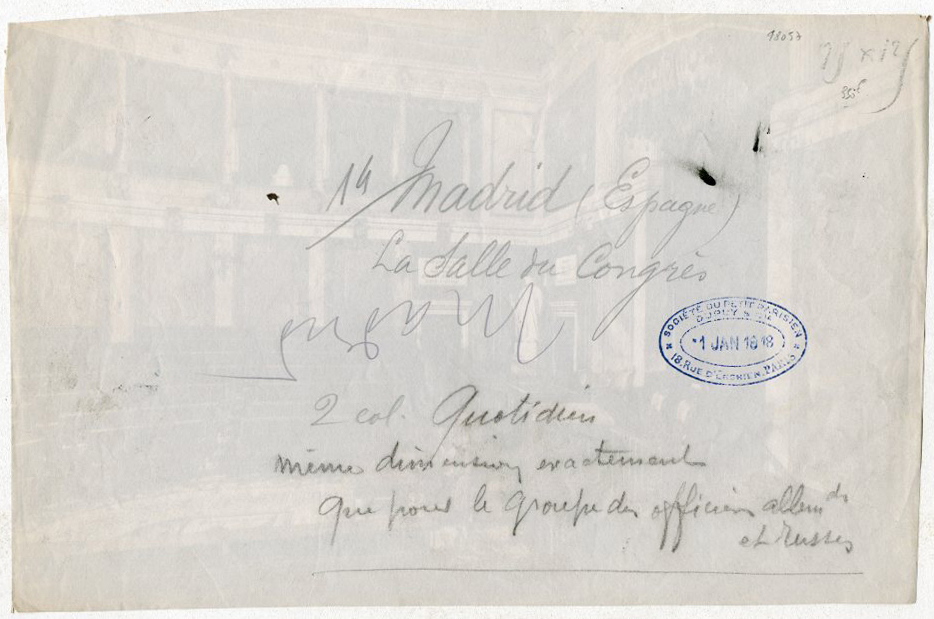 18057
1a Madrid (Espagne)
La Salle du Congrès
Madrid
SOCIÉTÉ DU PETIT PARISIEN
DUPUY & CIE
-1 JAN 1918
18, RUE D'ENGHIEN, PARIS
2 col. Quotidien
même dimension exactement
que pour le groupe des officiers allem ds
et russes